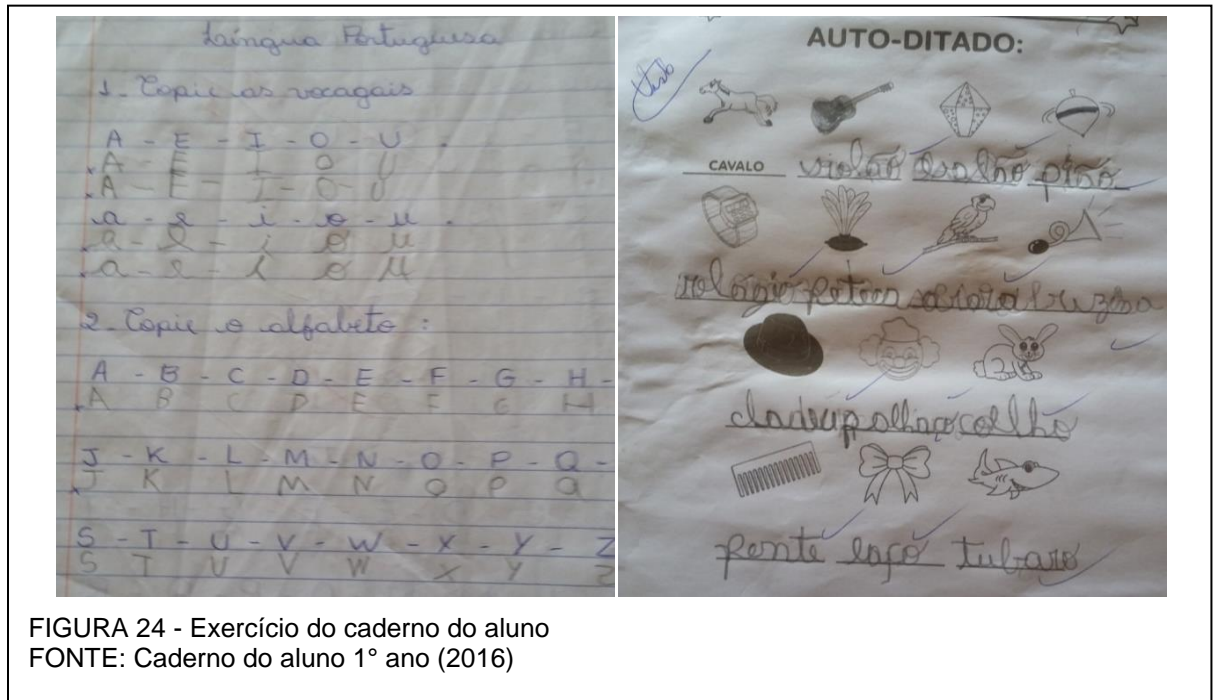 Língua Portuguesa
1. Copie as vocagais
A - E - I - O - U .
A - E I O U
A - E - I - O - U
a - e - i - o - u .
a - e - i o u
a - e - i o u
2. Copie o alfabeto :
A - B - C - D - E - F - G - H -
A B C D E F G H
J - K - L - M - N - O - P - Q -
J K L M N O P Q
S - T - U - V - W - X - Y - Z
S T U V W X Y Z
AUTO-DITADO:
Visto
CAVALO violão pião
relógio peteca
palhaço coelho
pente laço tubaro
FIGURA 24 - Exercício do caderno do aluno
FONTE: Caderno do aluno 1° ano (2016)